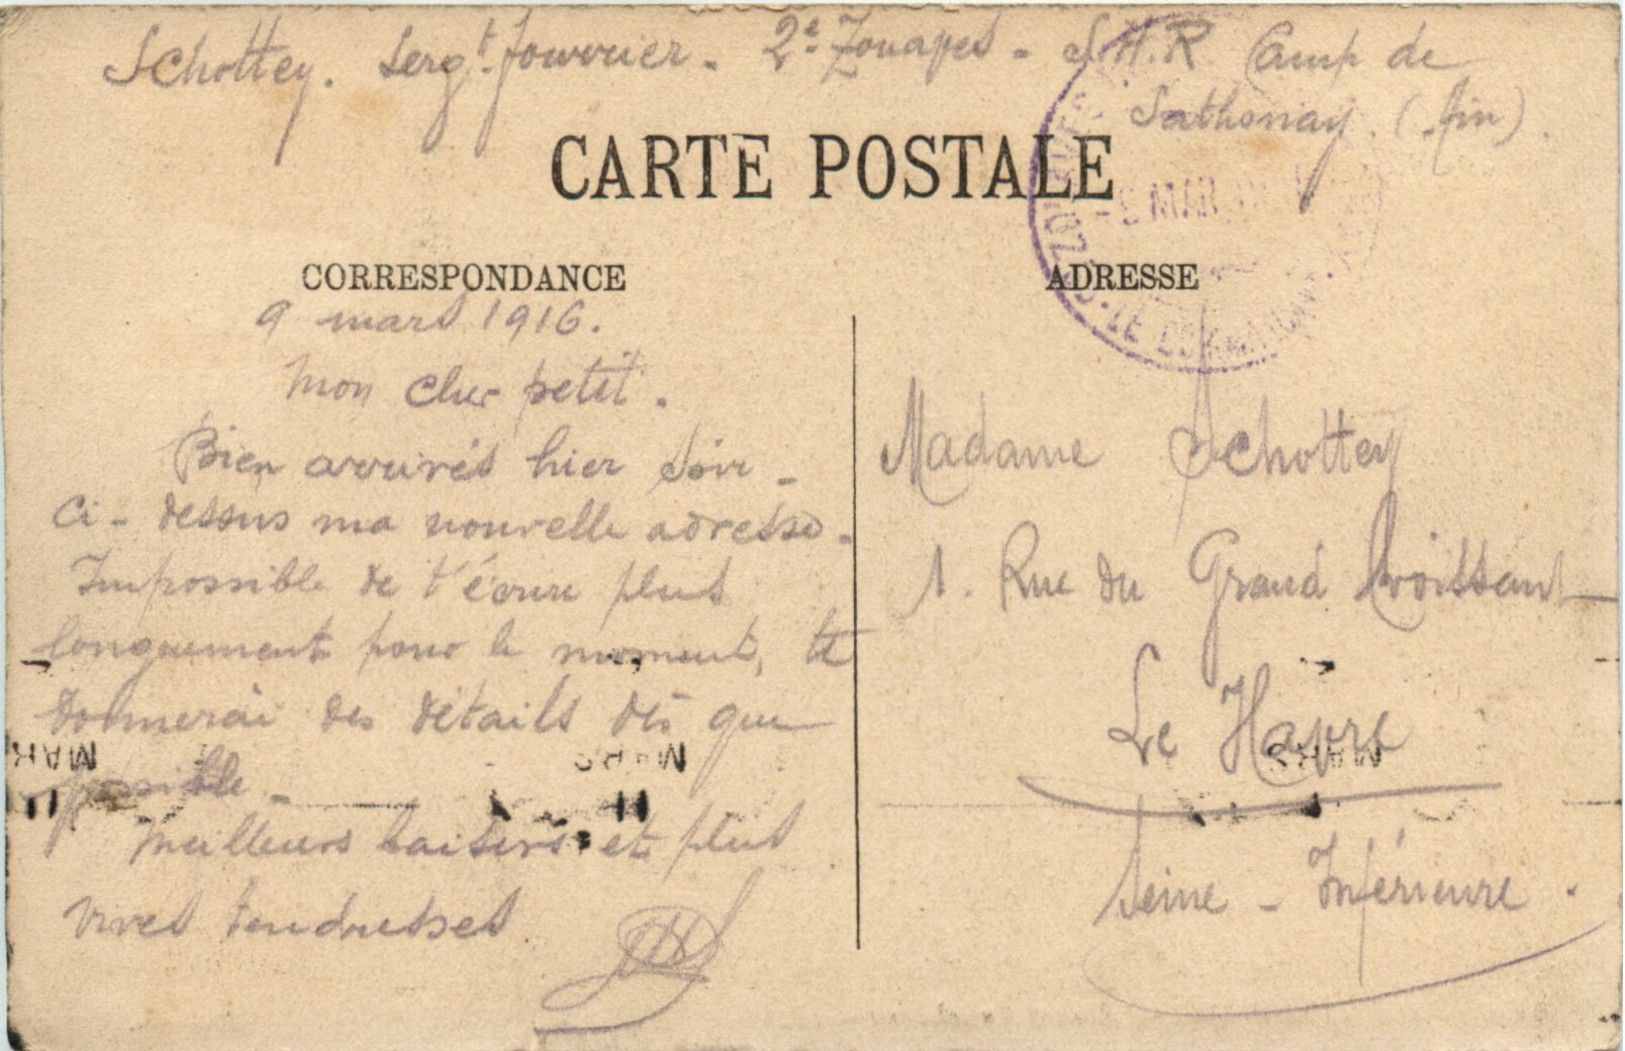 Schottey. Serg.t fourrier. 2e Zouaves - S.H.R Camp de
Sathonay. (Ain).
CARTE POSTALE
CORRESPONDANCE
ADRESSE
9 mars 1916.
Mon cher petit.
Bien arrivés hier soir -
Ci-dessus ma nouvelle adresse.
Impossible de t'écrire plus
longuement pour le moment, te
donnerai des détails dès que
possible -
Meilleurs baisers et plus
vives tendresses
Madame Schottey
1. Rue du Grand Croissant
Le Havre
Seine - Inférieure.
MAR
MARS
MARS